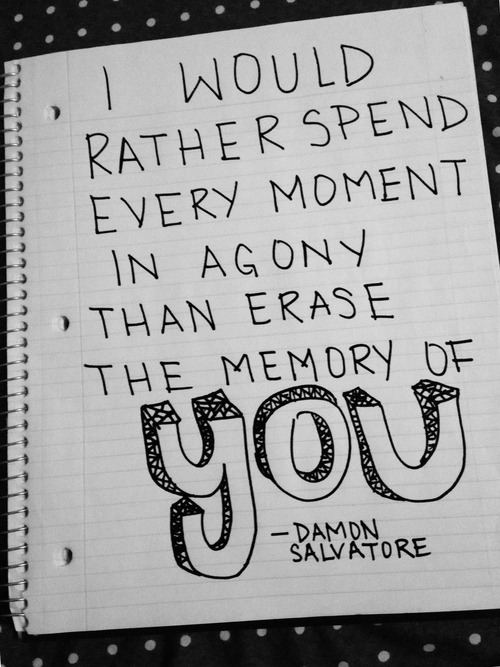 I WOULD
RATHER SPEND
EVERY MOMENT
IN AGONY
THAN ERASE
THE MEMORY OF
YOU
- DAMON
SALVATORE